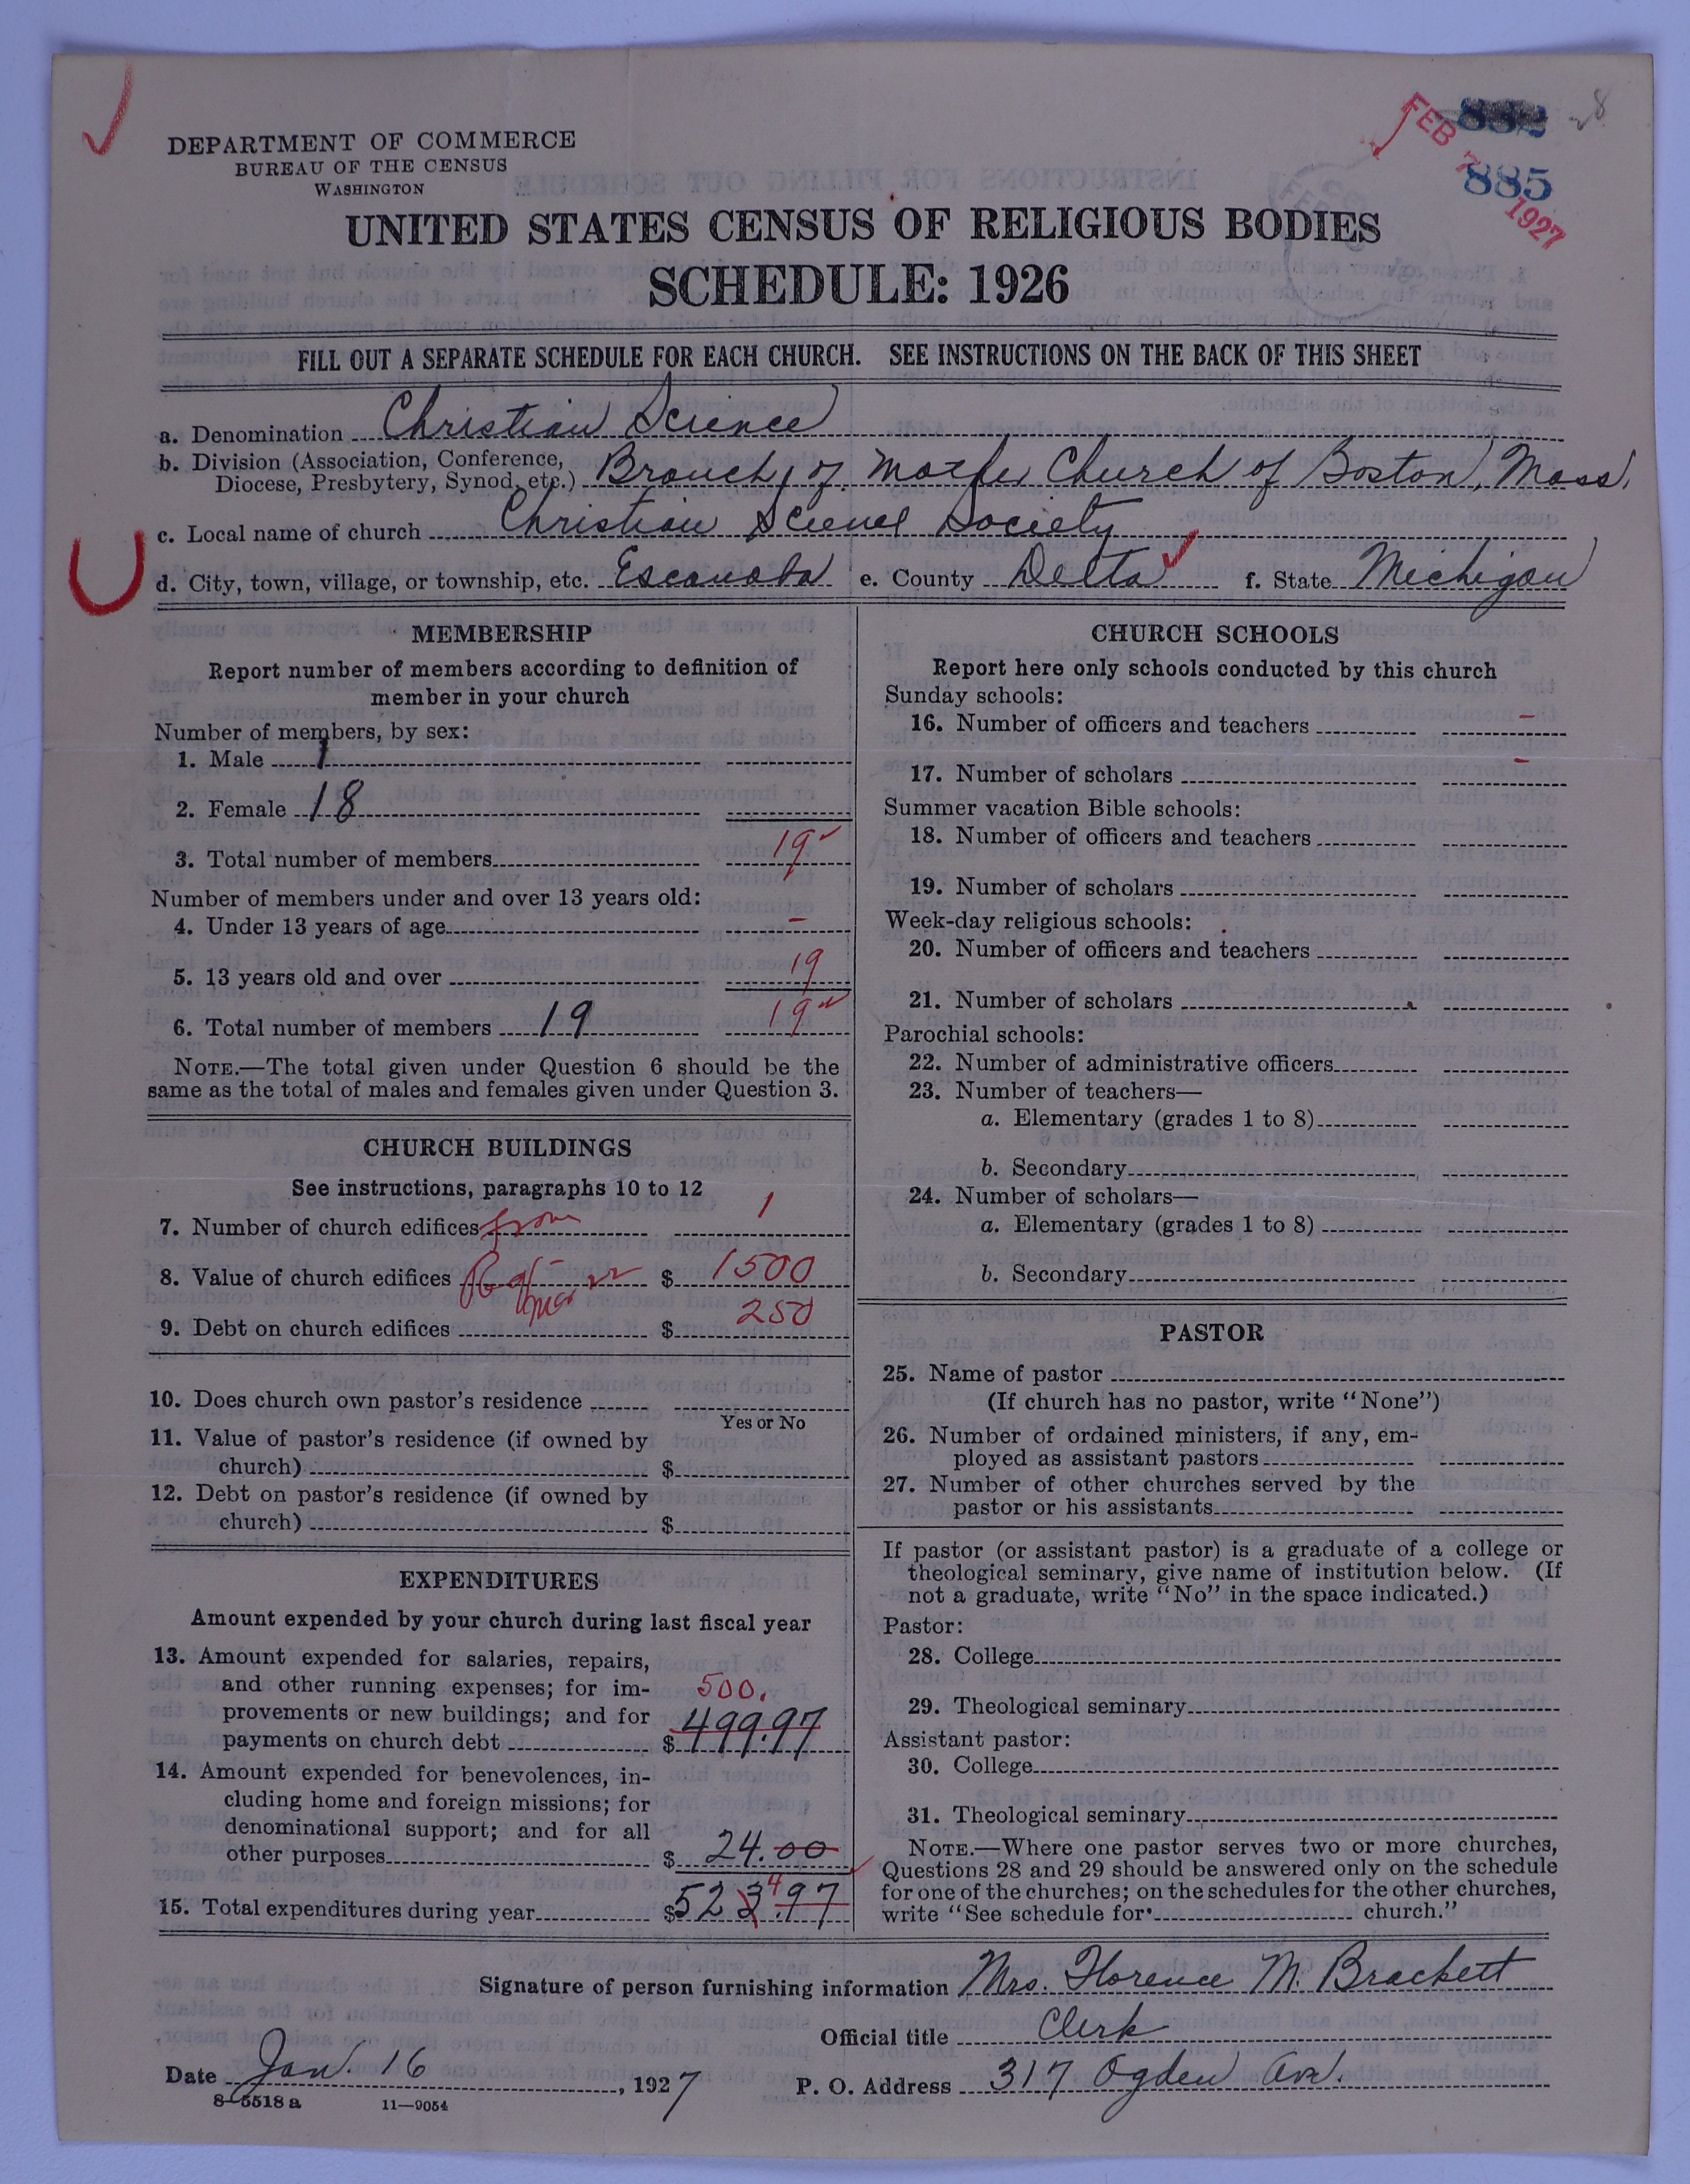 FEB 7 1927
832
885
DEPARTMENT OF COMMERCE
BUREAU OF THE CENSUS
WASHINGTON
UNITED STATES CENSUS OF RELIGIOUS BODIES
SCHEDULE: 1926
FILL OUT A SEPARATE SCHEDULE FOR EACH CHURCH. SEE INSTRUCTIONS ON THE BACK OF THIS SHEET
a. Denomination Christian Science
b. Division (Association, Conference, Diocese, Presbytery, Synod, etc.) Branch of Mother Church of Boston, Mass.
c. Local name of church Christian Science Society
d. City, town, village, or township, etc. Escanaba e. County Delta f. State Michigan
MEMBERSHIP
Report number of members according to definition of
member in your church
Number of members, by sex:
1. Male 1
2. Female 18
3. Total number of members 19
Number of members under and over 13 years old:
4. Under 13 years of age –
5. 13 years old and over 19
6. Total number of members 19 19
NOTE.—The total given under Question 6 should be the
same as the total of males and females given under Question 3.
CHURCH BUILDINGS
See instructions, paragraphs 10 to 12
7. Number of church edifices from 1
8. Value of church edifices $ 1500
9. Debt on church edifices $ 250
10. Does church own pastor's residence
Yes or No
11. Value of pastor's residence (if owned by
church) $
12. Debt on pastor's residence (if owned by
church) $
EXPENDITURES
Amount expended by your church during last fiscal year
13. Amount expended for salaries, repairs,
and other running expenses; for im-
provements or new buildings; and for 500.
payments on church debt $ 499.97
14. Amount expended for benevolences, in-
cluding home and foreign missions; for
denominational support; and for all
other purposes $ 24.00
15. Total expenditures during year $ 523.97 4
CHURCH SCHOOLS
Report here only schools conducted by this church
Sunday schools:
16. Number of officers and teachers –
17. Number of scholars –
Summer vacation Bible schools:
18. Number of officers and teachers
19. Number of scholars
Week-day religious schools:
20. Number of officers and teachers
21. Number of scholars
Parochial schools:
22. Number of administrative officers
23. Number of teachers—
a. Elementary (grades 1 to 8)
b. Secondary
24. Number of scholars—
a. Elementary (grades 1 to 8)
b. Secondary
PASTOR
25. Name of pastor
(If church has no pastor, write "None")
26. Number of ordained ministers, if any, em-
ployed as assistant pastors
27. Number of other churches served by the
pastor or his assistants
If pastor (or assistant pastor) is a graduate of a college or
theological seminary, give name of institution below. (If
not a graduate, write "No" in the space indicated.)
Pastor:
28. College
29. Theological seminary
Assistant pastor:
30. College
31. Theological seminary
NOTE.—Where one pastor serves two or more churches,
Questions 28 and 29 should be answered only on the schedule
for one of the churches; on the schedules for the other churches,
write "See schedule for church."
Signature of person furnishing information Mrs. Florence M. Brackett
Official title Clerk
Date Jan. 16, 1927 P. O. Address 317 Ogden Ave.
8-5518 a 11—9054